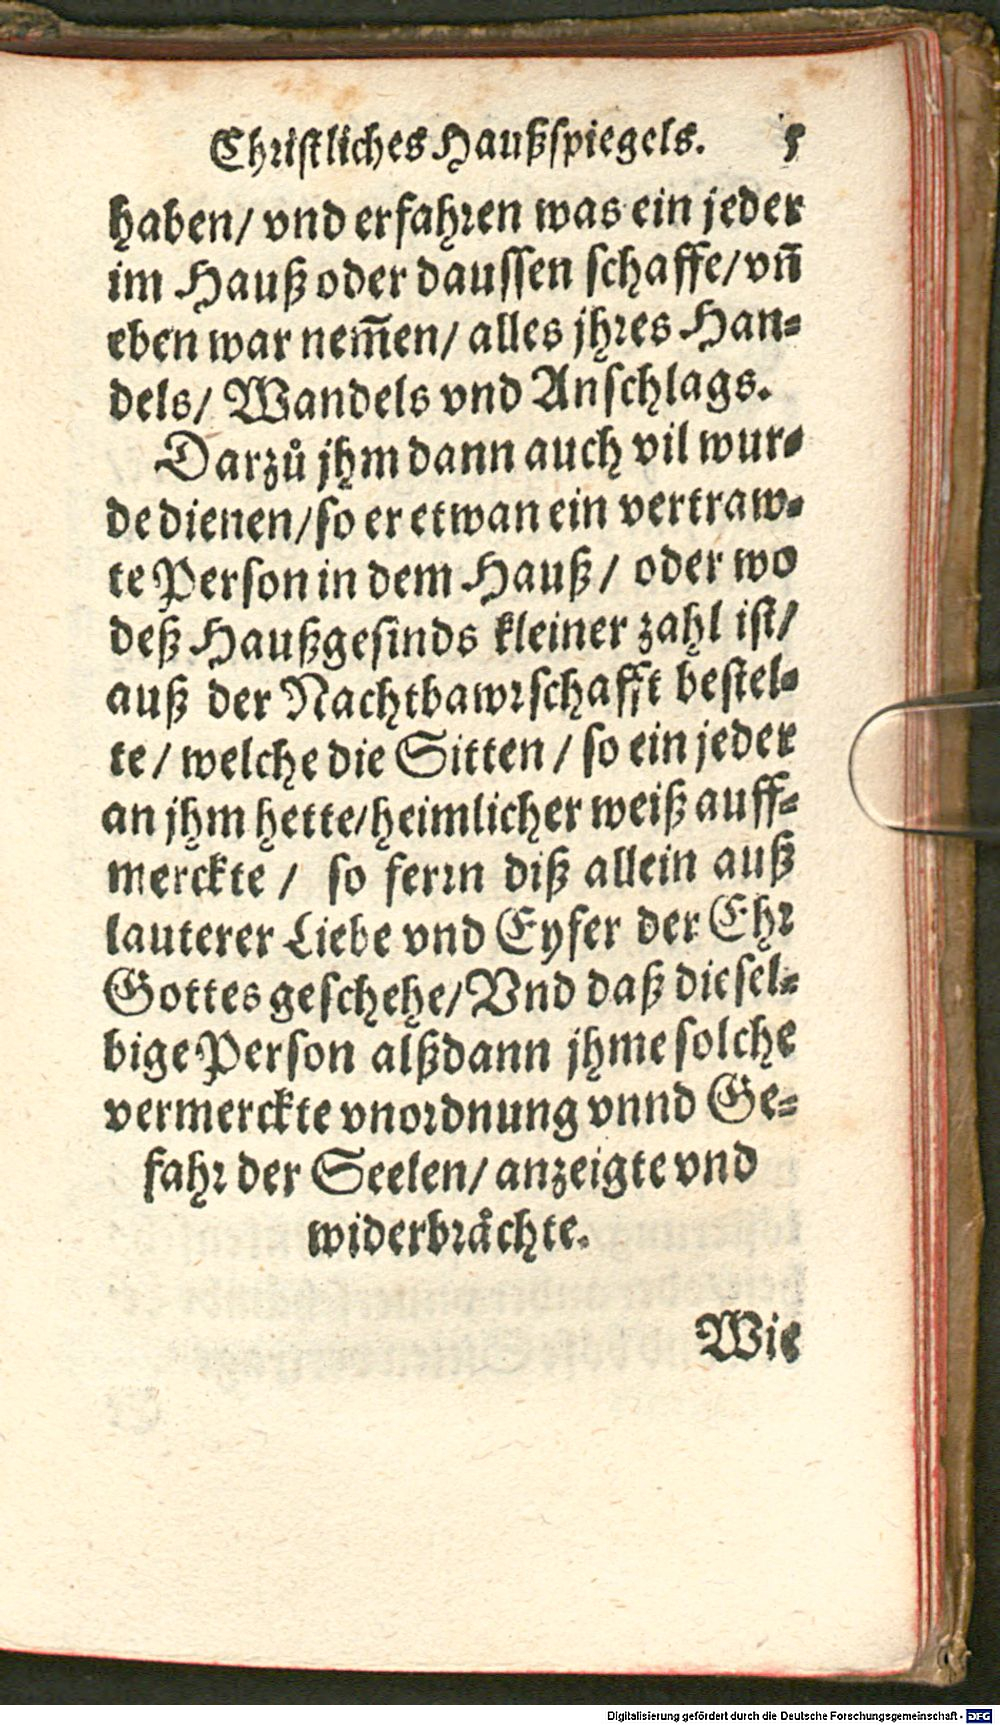 Christliches Haußspiegels. 5
haben/ vnd erfahren was ein jeder
im Hauß oder daussen schaffe/ vn̄
eben war nem̄en/ alles jhres Han-
dels/ Wandels vnd Anschlags.
Darzuͦ jhm dann auch vil wur-
de dienen/ so er etwan ein vertraw-
te Person in dem Hauß/ oder wo
deß Haußgesinds kleiner zahl ist/
auß der Nachtbawrschafft bestel-
te/ welche die Sitten/ so ein jeder
an jhm hette/ heimlicher weiß auff-
merckte/ so ferrn diß allein auß
lauterer Liebe vnd Eyfer der Ehr
Gottes geschehe/ Vnd daß diesel-
bige Person alßdann jhme solche
vermerckte vnordnung vnnd Ge-
fahr der Seelen/ anzeigte vnd
widerbraͤchte.
Wie
Digitalisierung gefördert durch die Deutsche Forschungsgemeinschaft - DFG